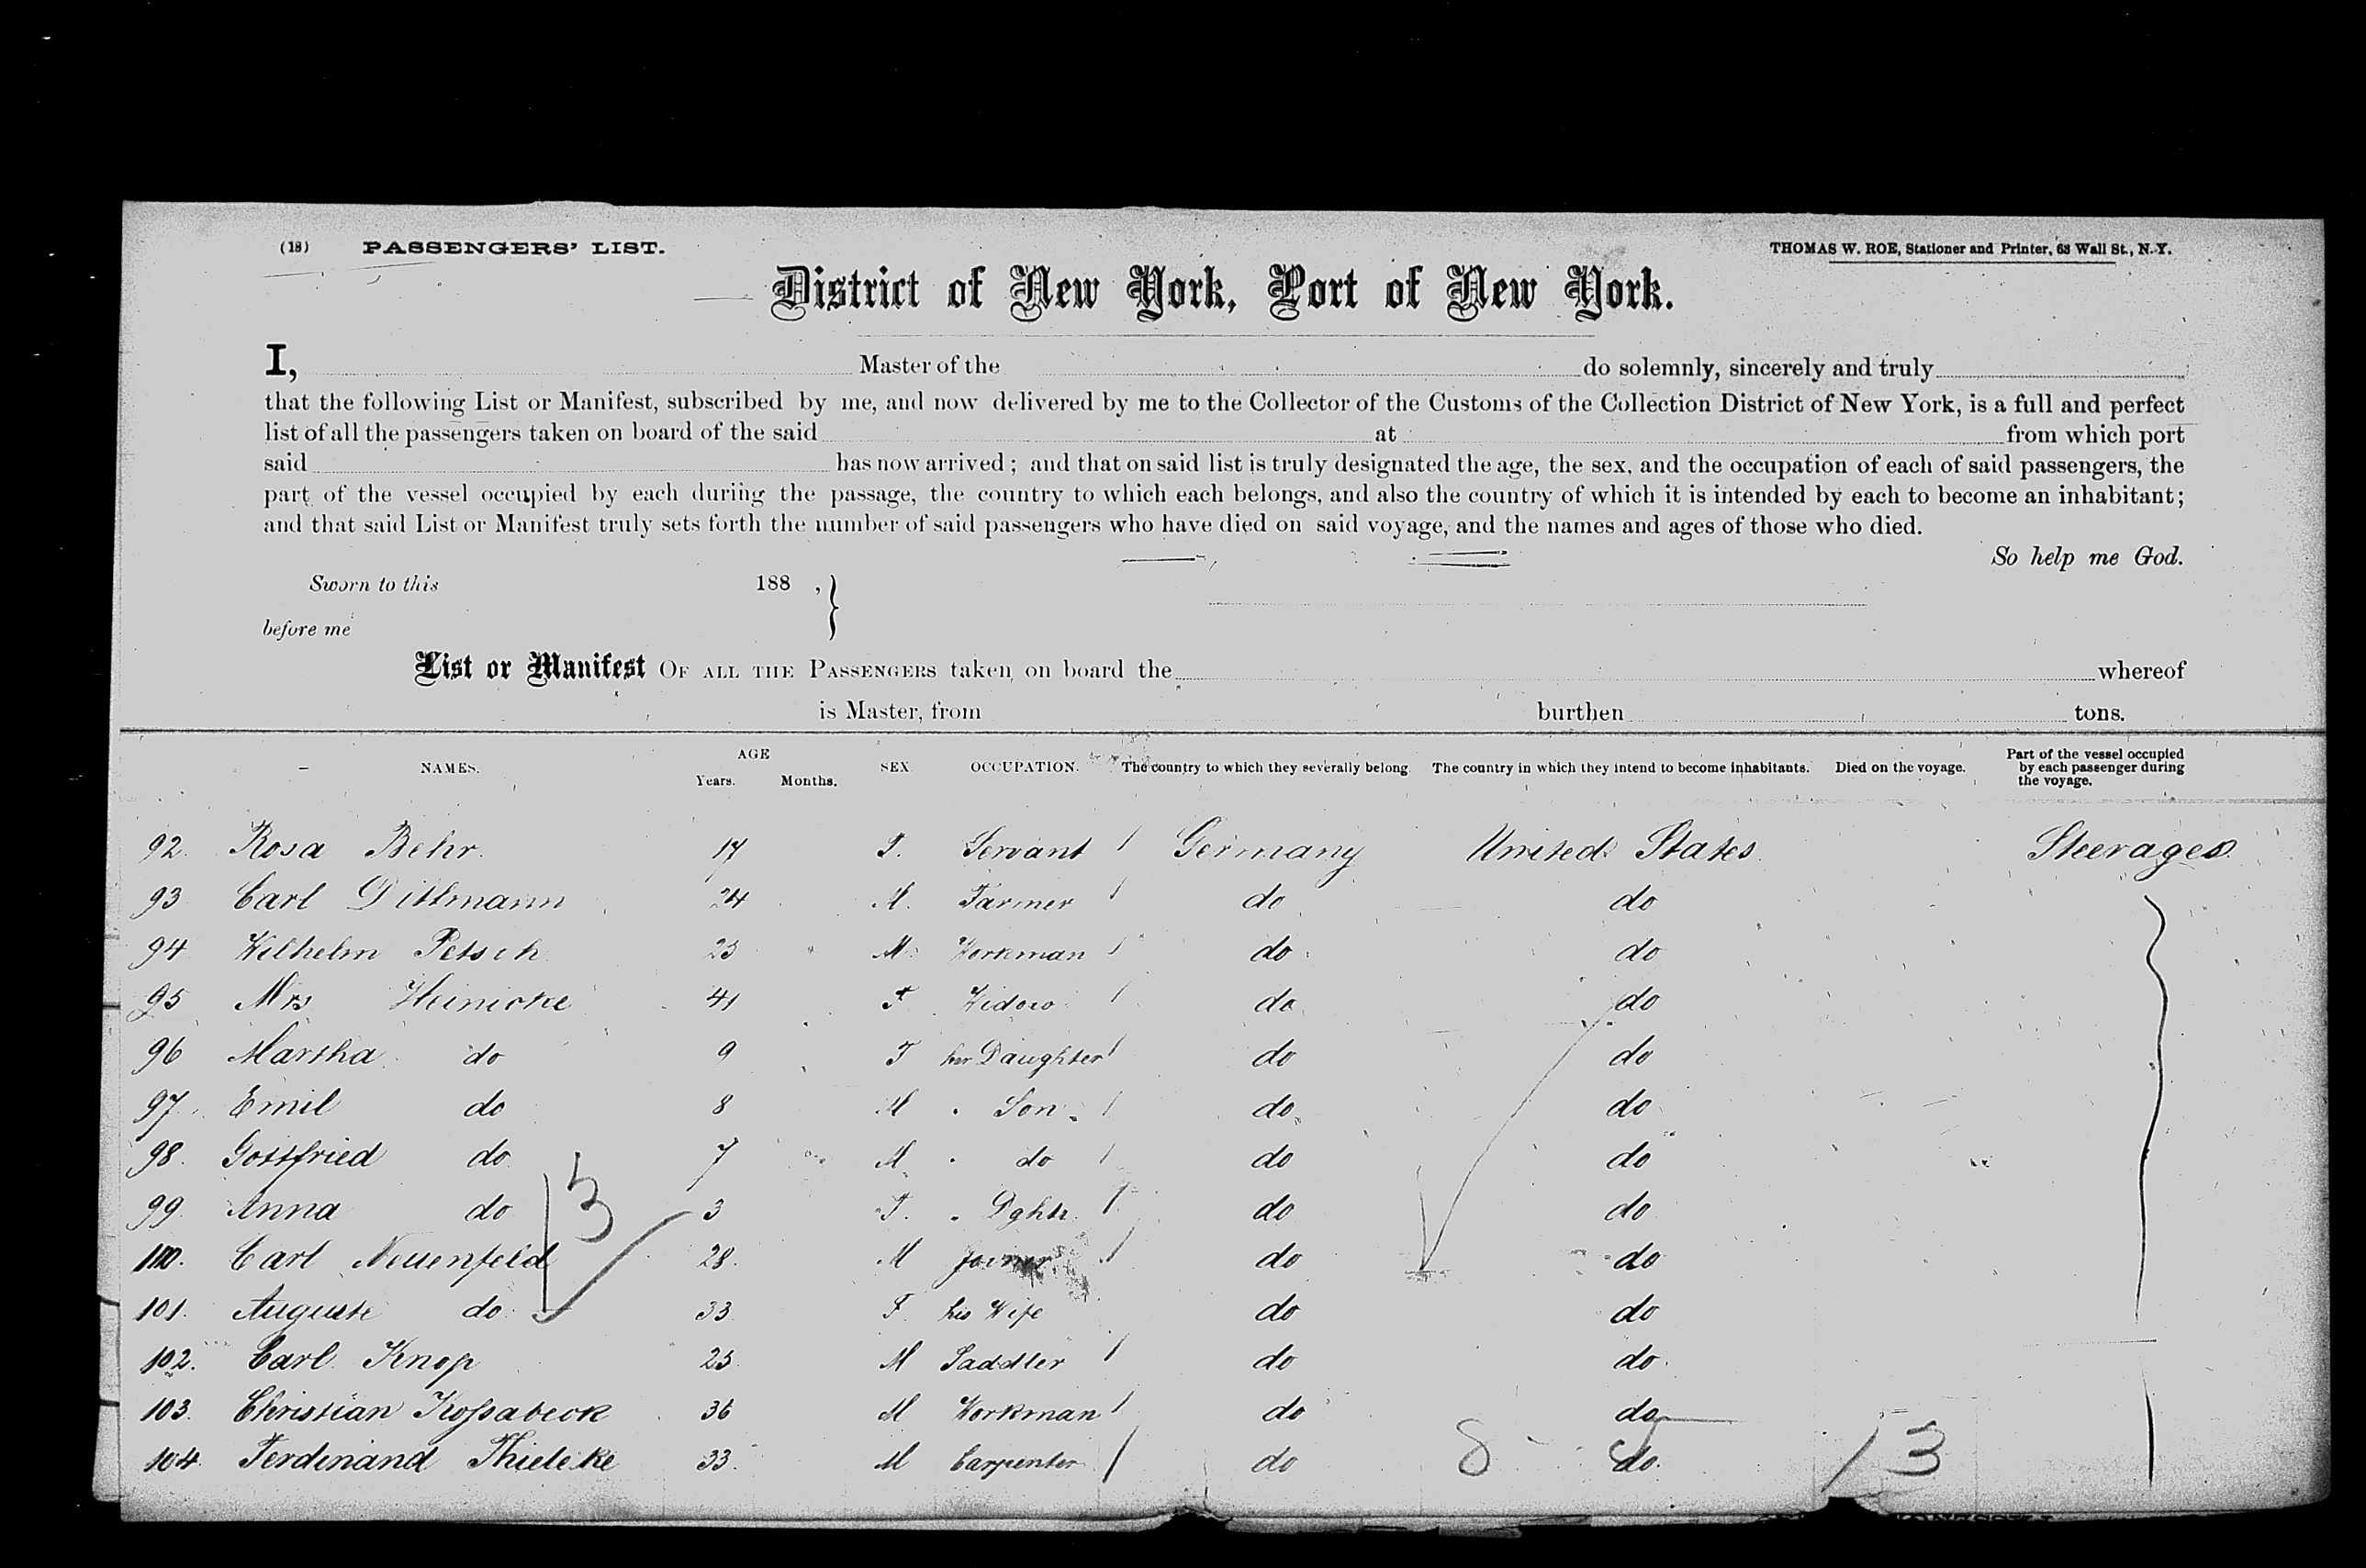 (18) PASSENGERS' LIST.
THOMAS W. ROE, Stationer and Printer, 63 Wall St., N.Y.
District of New York, Port of New York.
I, Master of the do solemnly, sincerely and truly
that the following List or Manifest, subscribed by me, and now delivered by me to the Collector of the Customs of the Collection District of New York, is a full and perfect
list of all the passengers taken on board of the said at from which port
said has now arrived; and that on said list is truly designated the age, the sex, and the occupation of each of said passengers, the
part of the vessel occupied by each during the passage, the country to which each belongs, and also the country of which it is intended by each to become an inhabitant;
and that said List or Manifest truly sets forth the number of said passengers who have died on said voyage, and the names and ages of those who died.
So help me God.
Sworn to this 188 ,
before me
List or Manifest OF ALL THE PASSENGERS taken on board the whereof
is Master, from burthen tons.
NAMES. AGE Years. Months. SEX. OCCUPATION. The country to which they severally belong. The country in which they intend to become inhabitants. Died on the voyage. Part of the vessel occupied by each passenger during the voyage.
92. Rosa Behr. 17 F. Servant Germany United States Steerages
93 Carl Dittmann 24 M. Farmer do do
94 Wilhelm Petsch 25 M. Workman do do
95 Mrs Heinicke 41 F Widow do do
96 Martha do 9 F her Daughter do do
97. Emil do 8 M " Son do do
98. Gottfried do 7 M " do do do
99. Anna do 3 F. " Dghtr. do do
100. Carl Neuenfeld 28. M Joiner do do
101. Auguste do 33 F. his Wife do do
102. Carl Knop 25 M Saddler do do
103. Christian Koſsabeck 36 M Workman do do
104. Ferdinand Thielecke 33. M Carpenter do do.
13
8
13